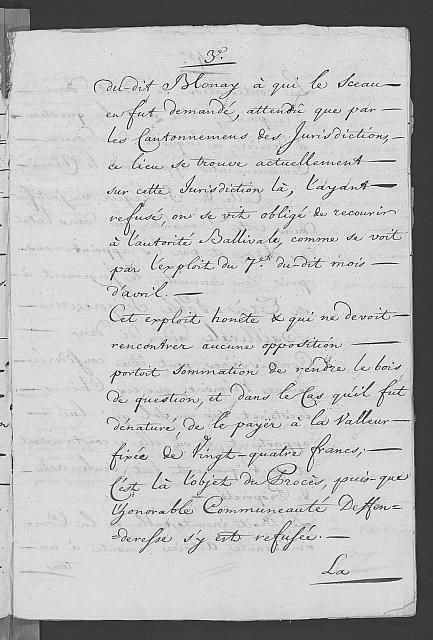 3.e
du-dit Blonay à qui le Sceau —
en fut demandé, attendû que par —
les Cantonnemens des Jurisdictions, —
ce lieu se trouve actuellement —
sur cette Jurisdiction là, l'ayant —
refusé, on se vit obligé de recourir
à l'autorité Ballivale, comme se voit
par l'exploit du 7.e du-dit mois —
d'avril. —
Cet exploit honête & qui ne devoit —
rencontrer aucune opposition —
portoit sommation de rendre le bois
de question, et dans le Cas qu'il fut
dénaturé, de le payer à la Valleur —
fixée de Vingt-quatre francs; —
C'est là l'objet du Procès, puis-que
l'honorable Communeauté Deffen=
=deresse s'y est refusée. —
La